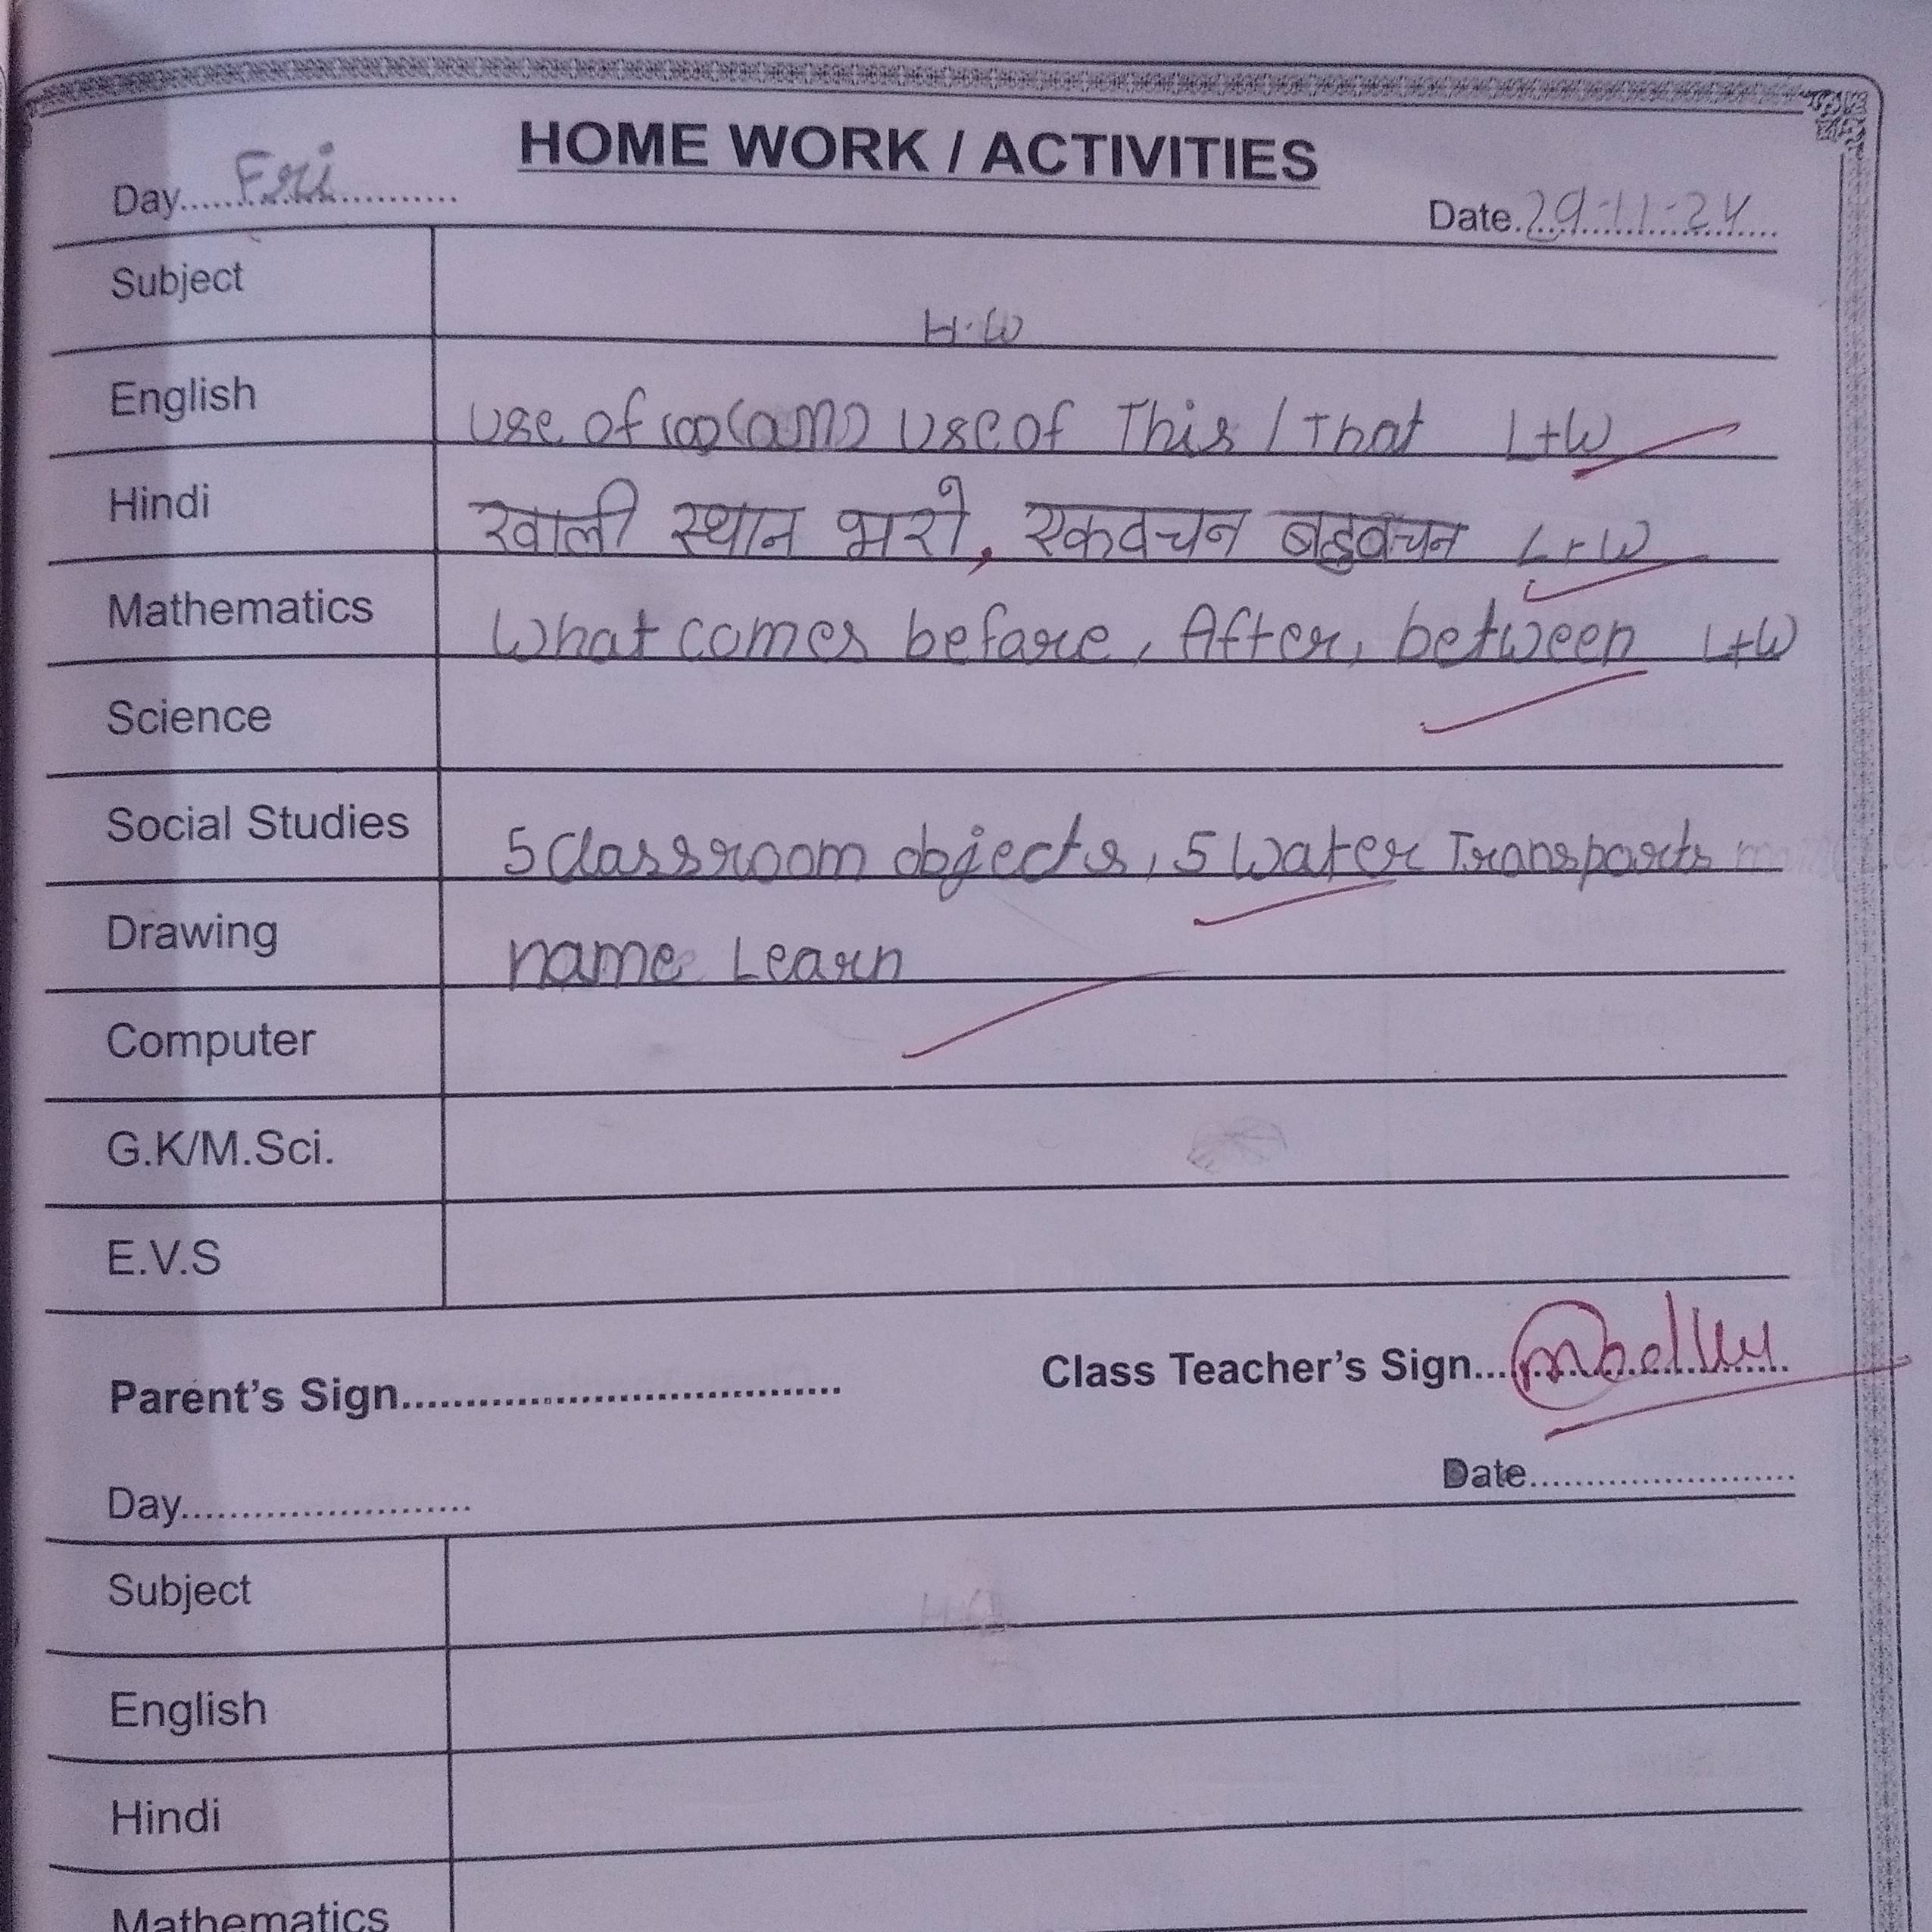 HOME WORK / ACTIVITIES
Day....Fri............
Date.29.11.24
Subject
H.W
English Use of (an) Use of This / That L+W
Hindi खाली स्थान भरो, एकवचन बहुवचन L+W
Mathematics What comes before, After, between L+W
Science
Social Studies 5 Classroom objects, 5 Water Transports
Drawing name Learn
Computer
G.K/M.Sci.
E.V.S
Parent's Sign..................................
Class Teacher's Sign...
Day........................
Date........................
Subject
English
Hindi
Mathematics